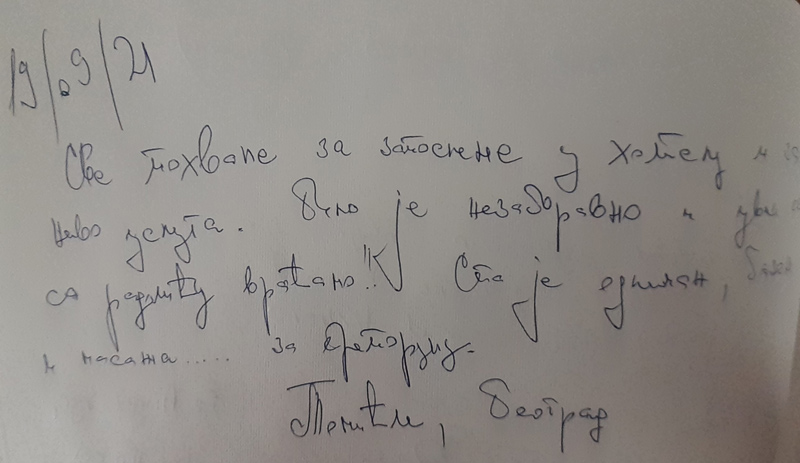 19/.9/21
Све похвале за запослене у хотелу и за
ниво услуга. Било је незаборавно и увек
са радошћу враћамо!! Спа је одличан, базен
и масажа..... за препоруку.
Београд